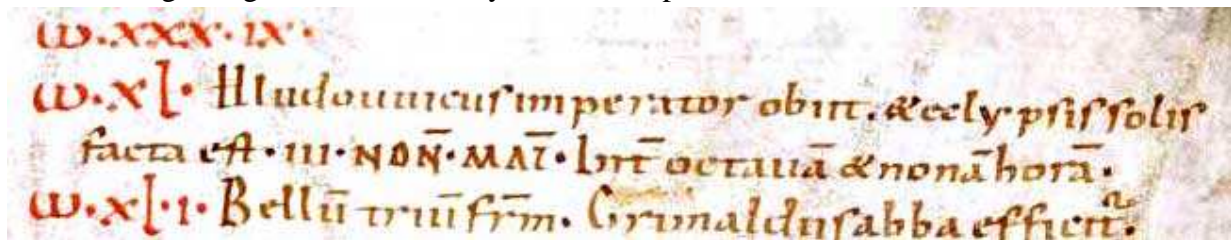 ω·xxx·ix·
ω·xl· Hludouuicus imperator obiit. & eclypsis solis
facta est· iii· NON̄· MAI̅· Int̄ octauā & nonā horā·
ω·xl·i· Bellū triū fr̄m. Grimaldus abba efficit᷑.